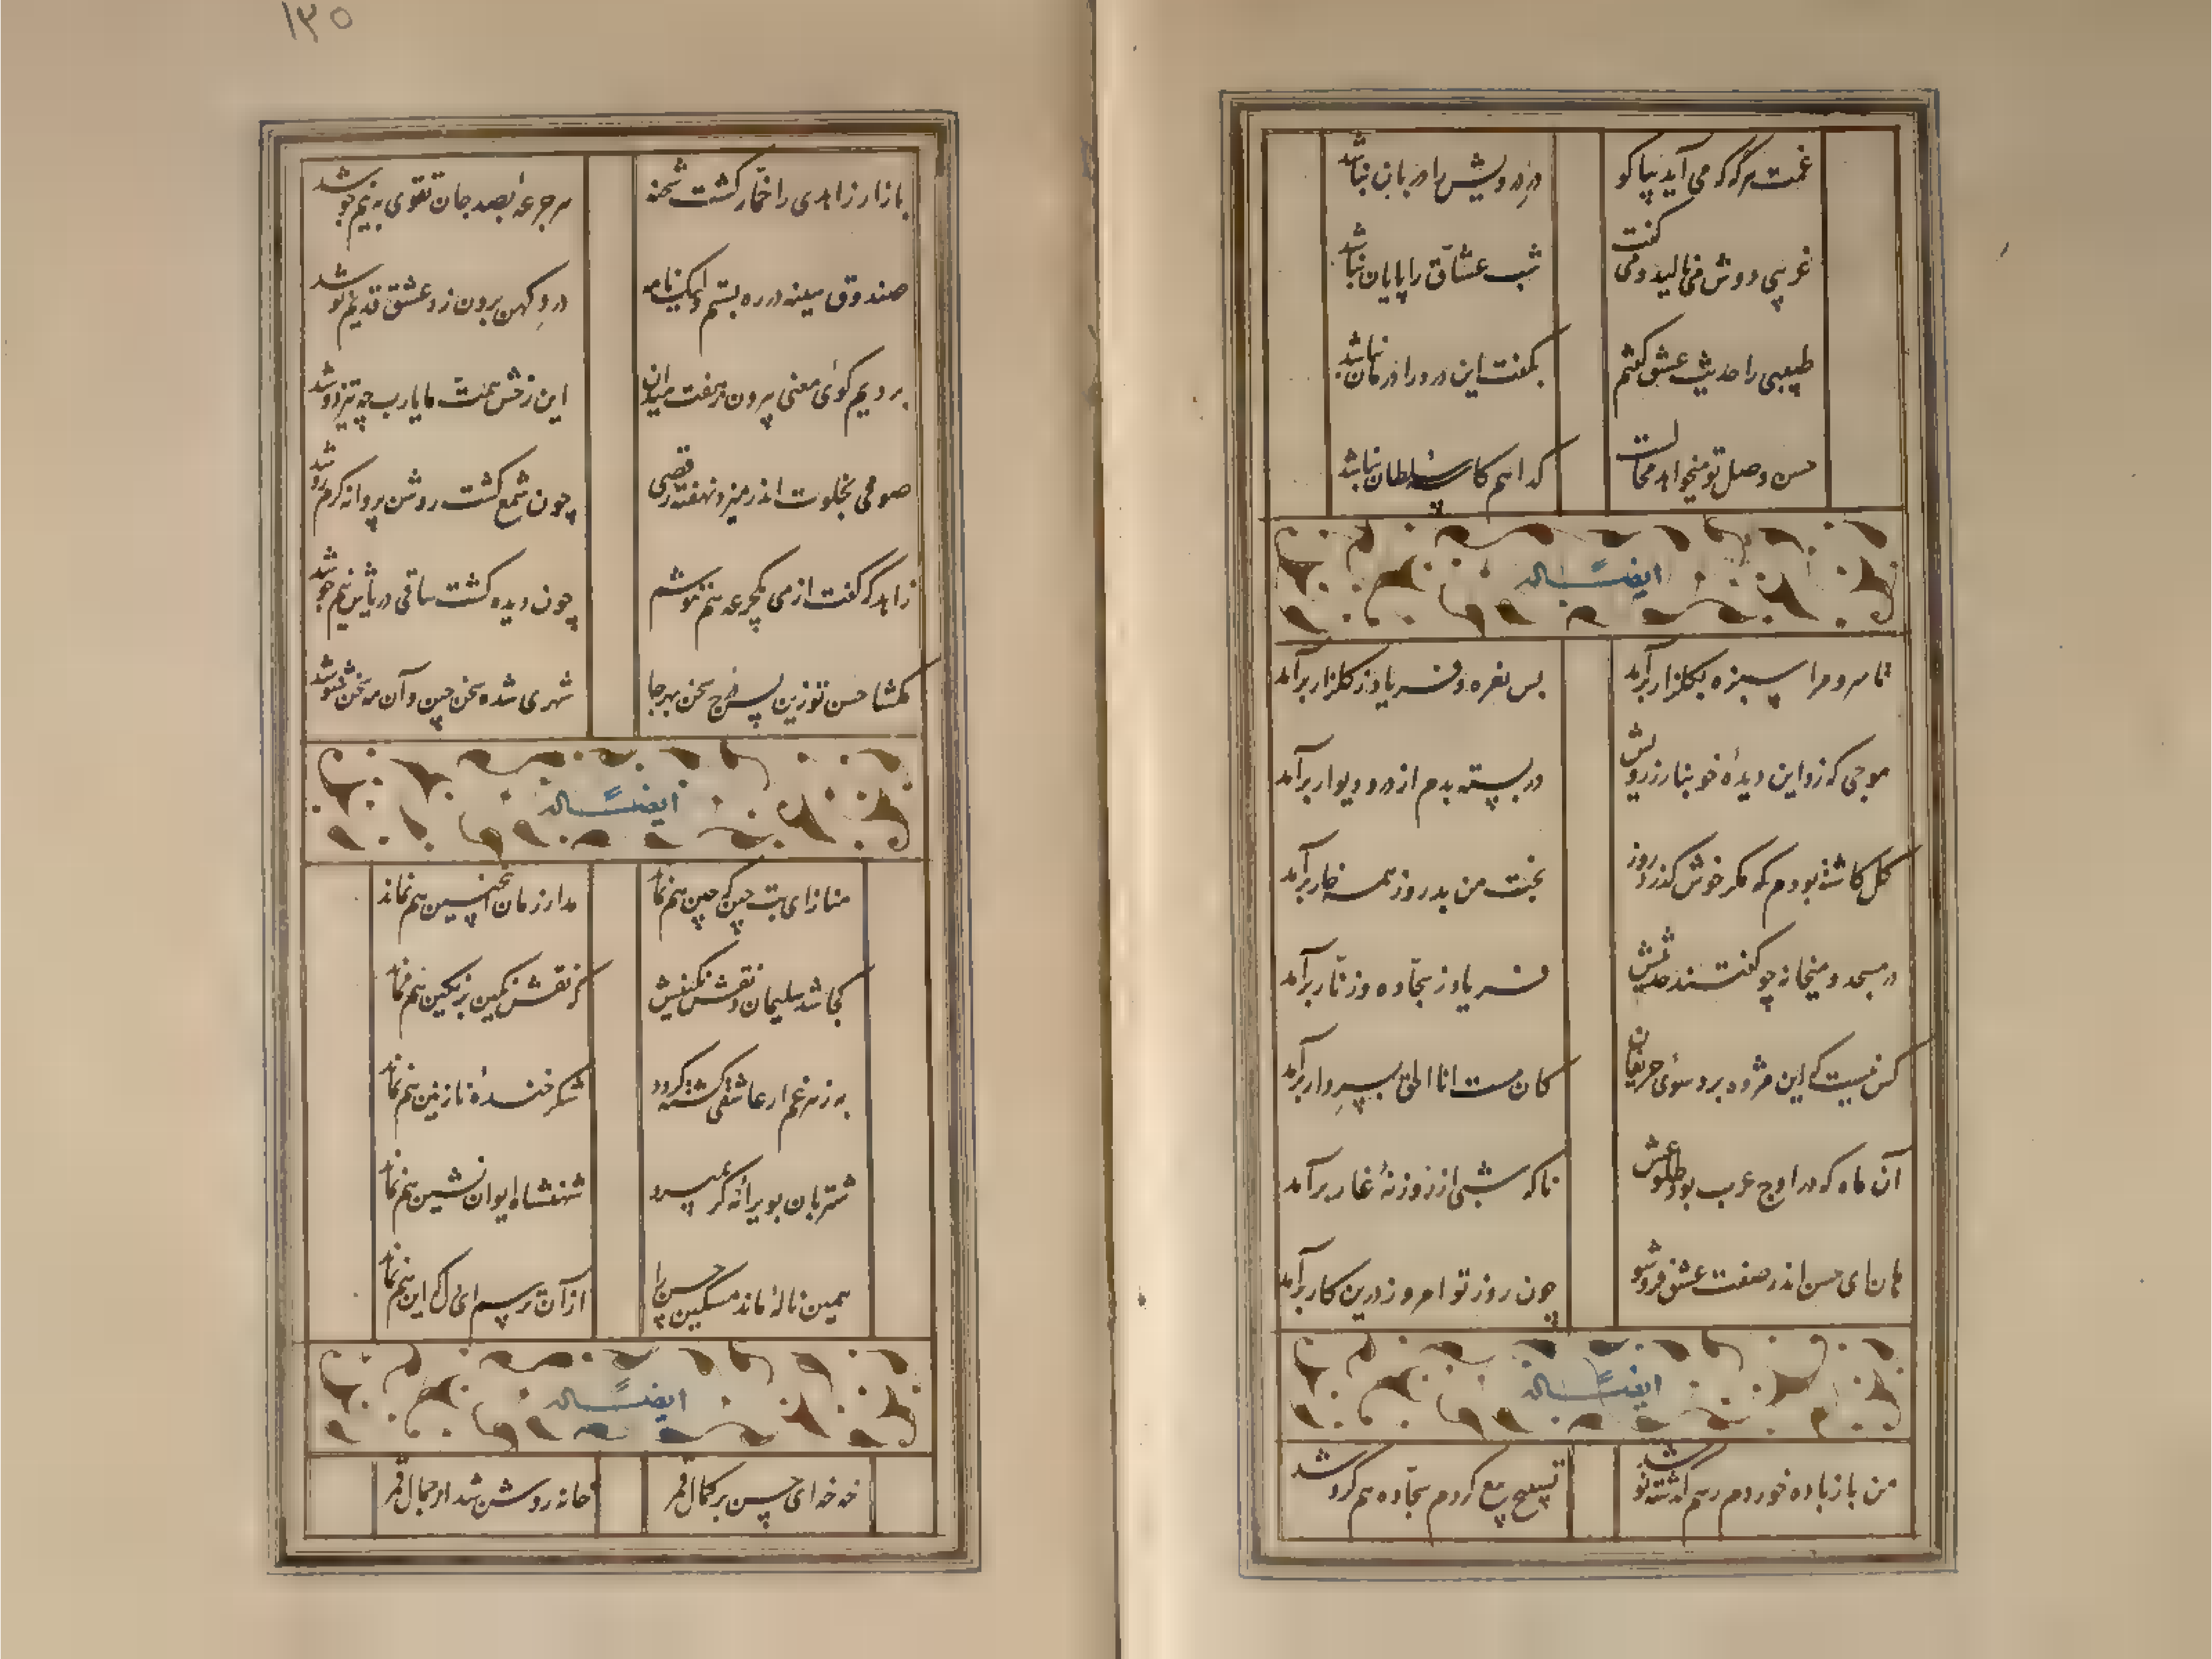 غمت هرگه که می آید بیا کو
در درویش را دربان نباشد
غریبی دوش می نالید و می گفت
شب عشاق را پایان نباشد
طبیبی را حدیث عشق گفتم
بگفت این درد را درمان نباشد
حسن وصل تو میخواهد محالست
گدا هم کاسه سلطان نباشد
ایضاً له
تا سرو مرا سبزه بگلزار برآمد
بس نعره و فریاد ز گلزار برآمد
موجی که زد این دیده خونبار ز رویش
در بسته بدم از در و دیوار برآمد
گل کاشته بودم که مگر خوش گذرد روز
بخت من بد روز همه خار برآمد
در مسجد و میخانه چو گفتند حدیثش
فریاد ز سجاده و زنار برآمد
کس نیست که این مژده برد سوی حریفان
کان مست انا الحق بسر دار برآمد
آن ماه که در اوج عرب بود طلوعش
ناگه شبی از روزنه غار برآمد
هان ای حسن اندر صفت عشق فرو شو
چون روز تو امروز درین کار برآمد
ایضاً له
من باز باده خوردم رسم گذشته نو شد
تسبیح بیع کردم سجاده هم گرو شد
۱۳۵
بازار زاهدی را خمار گشت شحنه
هر جرعه بصد جان تقوی به نیم جو شد
صندوق سینه در ره بستم ولیک ناگه
درد کهن برون زد عشق قدیم نو شد
بردیم گوی معنی بیرون ز هفت میدان
این رخش همت ما یارب چه تیز دو شد
صوفی بخلوت اندر میزد نهفته رقصی
چون شمع گشت روشن پروانه گرم رو شد
زاهد که گفت از می یکجرعه هم ننوشم
چون دیده گشت ساقی در پاش نیم جو شد
مگشا حسن تو زین پس درج سخن بهر جا
شهری شده سخن چین و آن مه سخن شنو شد
ایضاً له
مناز ای بت چین که چین هم نماند
مدار زمان اینچنین هم نماند
کجا شد سلیمان و نقش نگینش
کز نقش نگین بر نگین هم نماند
به زهر غم ار عاشقی کشته گردد
شکر خنده نازنین هم نماند
شتربان بویرانه گر بمیرد
شهنشاه ایوان نشین هم نماند
همین ناله ماند مسکین حسن را
از آن ترسم ای کل که این هم نماند
ایضاً له
خه خه ای حسن بر کمال قمر
خانه روشن شد از جمال قمر